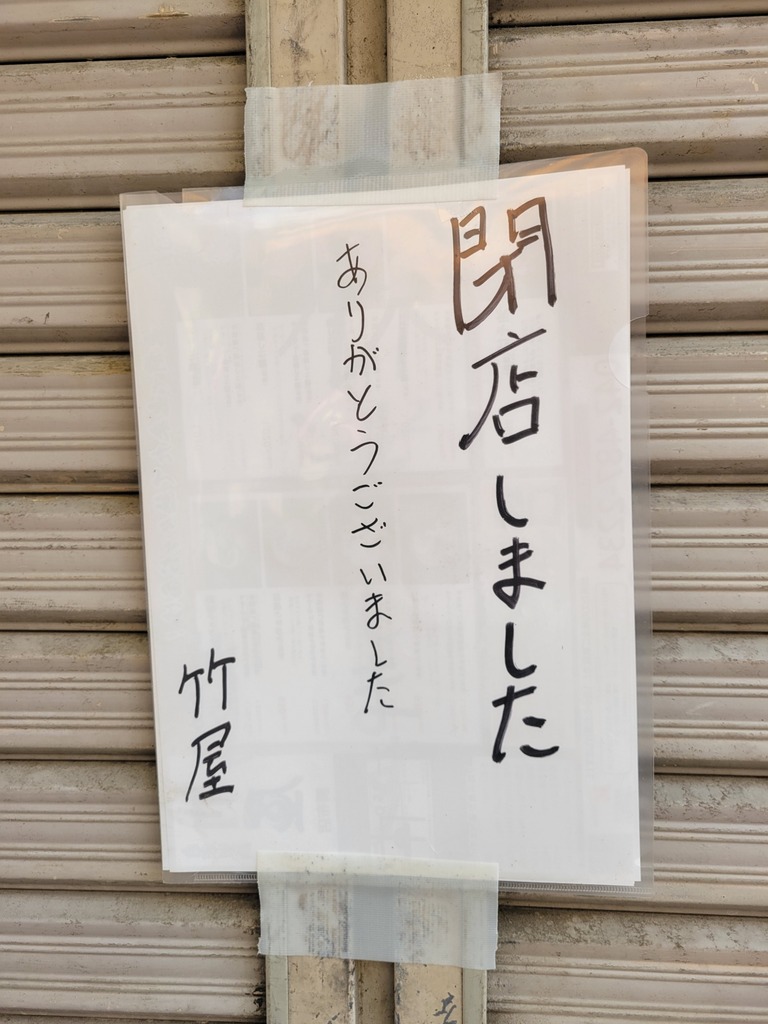 閉店しました
ありがとうございました
竹屋